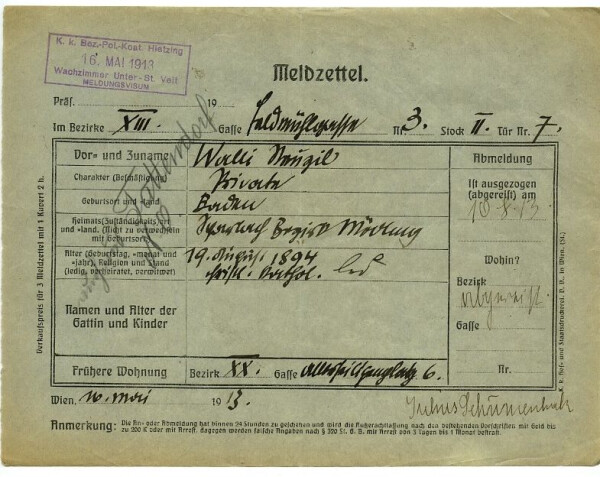 K. k. Bez.-Pol.-Komt. Hietzing
16. MAI 1913
Wachzimmer Unter-St. Veit
MELDUNGSVISUM
Meldzettel.
Präf. 19
Im Bezirke XIII. Gasse Feldmühlgasse Nr. 3. Stock II. Tür Nr. 7.
Vor- und Zuname Walli Neuzil
Charakter (Beschäftigung) Private
Geburtsort und -land Baden
Heimats(Zuständigkeits)ort und -land. (Nicht zu verwechseln mit Geburtsort) Sparbach Bezirk Mödling
Alter (Geburtstag, -monat und -jahr), Religion und Stand (ledig, verheiratet, verwitwet) 19. August 1894
Kathol. led
Namen und Alter der Gattin und Kinder
Frühere Wohnung Bezirk XX. Gasse 6.
Wien, 16. Mai 1913.
Abmeldung
Ist ausgezogen (abgereist) am
10-8-13
Wohin?
Bezirk
abgereist.
Gasse
Nr.
Anmerkung: Die An- oder Abmeldung hat binnen 24 Stunden zu geschehen und wird die Außerachtlassung nach den bestehenden Vorschriften mit Geld bis
zu 200 K oder mit Arrest, dagegen werden falsche Angaben nach § 320 St. G. B. mit Arrest von 3 Tagen bis 1 Monat bestraft.
Verkaufspreis für 3 Meldzettel mit 3 Kuvert 2 h.
K. k. Hof- und Staatsdruckerei